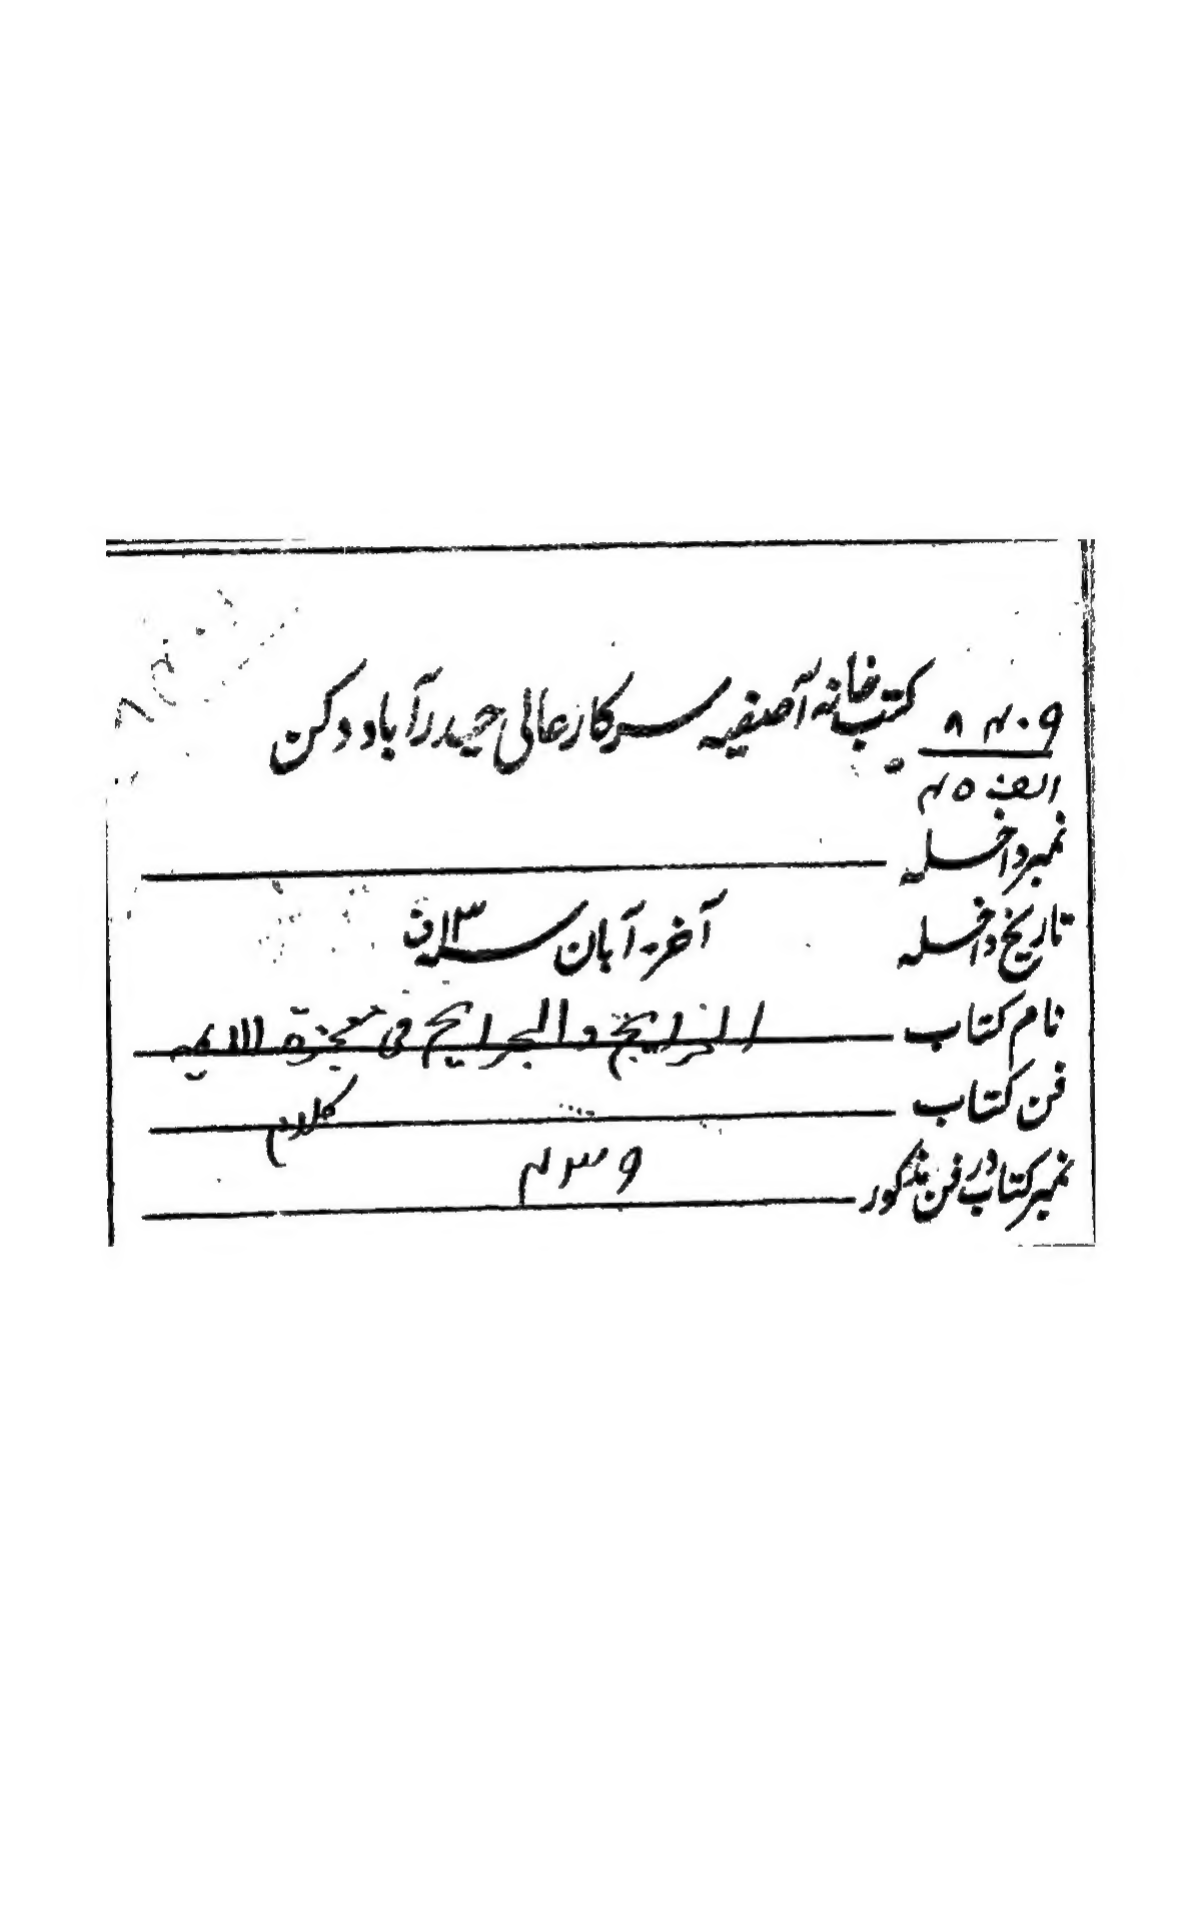 کتب خانہ آصفیہ سرکار عالی حیدرآباد دکن
الف ۴۵
نمبر داخلہ
تاریخ داخلہ آخر آبان ۱۳
نام کتاب الخرایج والجرایح فی معجزۃ الایمہ
فن کتاب کلام
نمبر کتاب در فن مذکور ۴۳۹